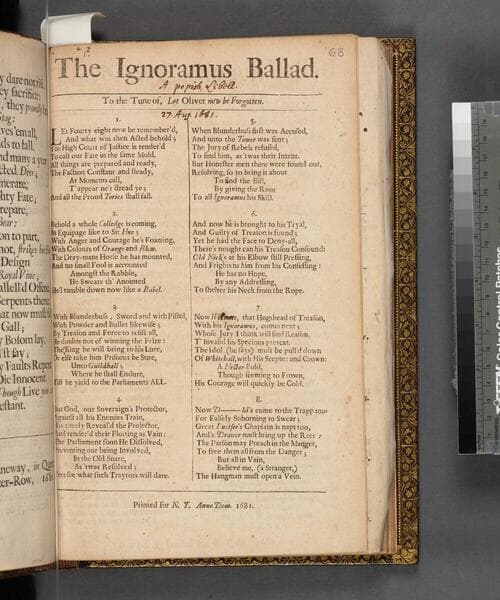 y dare not rise
ey sacrifice;
, they proudly
Stag:
ves'em all,
ds to fall.
nd many a year
cted Deer;
nerate;
hty Fate;
repare,
Bear:
on to part,
not, strikes his
Design
Royal Vine;
allell'd Offen
Serpents then:
at now must
Gall;
y Bosom lay,
'st say;
y Faults Repent
Die Innocent.
though Live you
estant.
neway, in Queen
er-Row, 1681
68
The Ignoramus Ballad.
A popish Libell.
To the Tune of, Let Oliver now be Forgotten.
27. Aug. 1681.
1.
LEt Fourty eight now be remember'd,
And what was then Acted behold;
The High Court of Justice is tender'd
To cast our Fate in the same Mold.
All things are prepared and ready,
The Faction Constant and steady,
At Moments call,
T'appear ne'r dread ye;
And all the Proud Tories shall fall.
2.
Behold a whole Colledge is coming,
In Equipage like to Sir Hue;
With Anger and Courage he's Foaming,
With Colours of Orange and Blew.
The Dray-mans Horse he has mounted,
And no small Fool is accounted
Amongst the Rabble,
He Swears th' Anointed
He'l tumble down now like a Babel.
3.
With Blunderbuss, Sword and with Pistol,
With Powder and Bullet likewise;
By Treason and Force to assist all,
He doubts not of winning the Prize:
The King he will bring to his Lure,
Or else take him Prisoner be Sure,
Unto Guildhall;
Where he shall Endure,
Till he yield to the Parliaments ALL.
4.
But God, our Soveraign's Protector,
Against all his Enemies Train,
Has timely Reveal'd the Projector,
And render'd their Plotting as Vain:
The Parliament soon He Dissolved,
Preventing our being Involved,
In the Old Snare,
As 'twas Resolved;
Then see what such Traytors will dare.
5.
When Blunderbuss first was Accused,
And unto the Tower was sent;
The Jury of Rebels refused,
To find him, as 'twas their Intent.
But Honester men there were found out,
Resolving, so to bring it about
To find the Bill,
By giving the Rout
To all Ignoramus his Skill.
6.
And now he is brought to his Tryal,
And Guilty of Treason is found;
Yet he had the Face to Deny-all,
There's nought can his Treason Confound:
Old Nick's at his Elbow still Pressing,
And Frightens him from his Confessing:
He has no Hope,
By any Addressing,
To shelter his Neck from the Rope.
7.
Now that Hogshead of Treason,
With his Ignoramus, comes next;
Whose Jury I think will find Reason,
T' Invalid his Specious pretext.
The Idol (he says) must be pull'd down
Of Whitehall, with His Scepter and Crown:
A Hector Bold,
Though seeming to Frown,
His Courage will quickly be Cold.
8.
Now D——ld's come to the Trapp too
For Falsely Suborning to Swear;
Great Lucifer's Chaplain is napt too,
And's Drawer must bring up the Reer:
The Parson may Preach in the Manger,
To free them all from the Danger;
But all in Vain,
Believe me, (a Stranger,)
The Hangman must open a Vein.
Printed for N. T. Anno Dom. 1681.